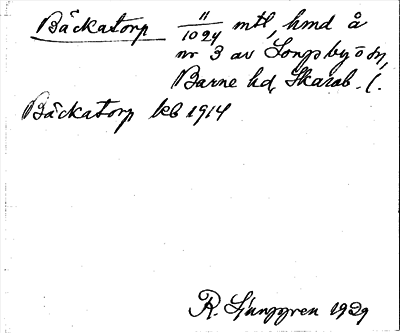 Bäckatorp 11/1024 mtl, hmd å
nr 3 av Longsby ö dn,
Barne hd, Skarab. l.
Bäckatorp leb 1914
R. Ljunggren 1929